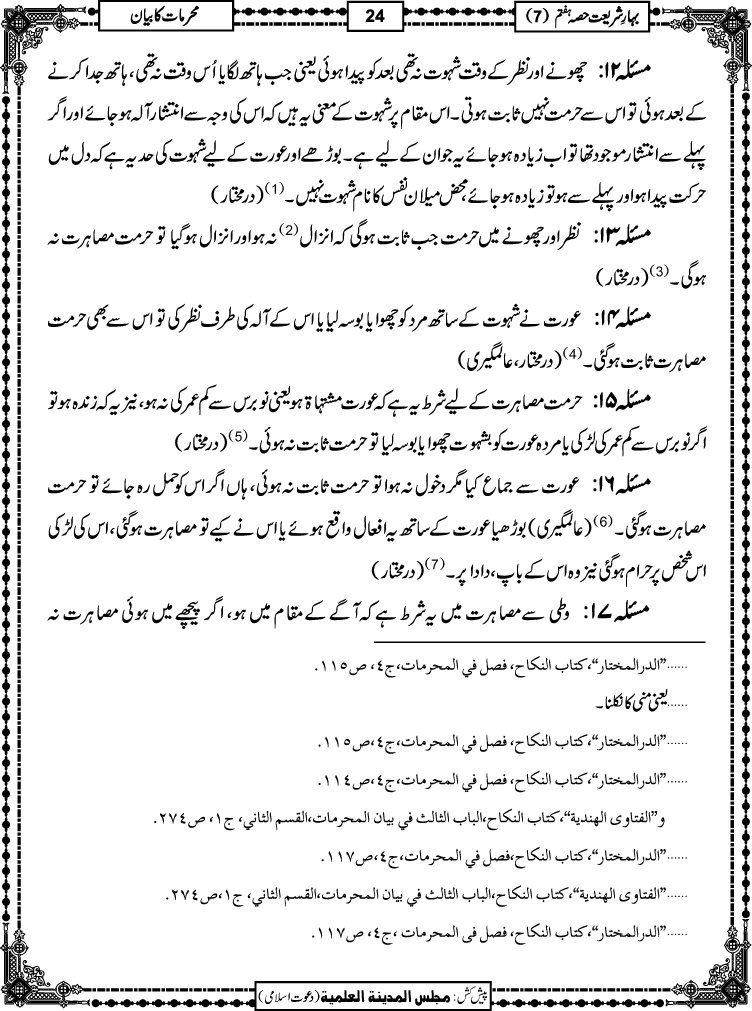 بہارِ شریعت حصہ ہفتم (7)
24
محرمات کا بیان
مسئلہ ۱۲: چھونے اور نظر کے وقت شہوت نہ تھی بعد کو پیدا ہوئی یعنی جب ہاتھ لگایا اُس وقت نہ تھی، ہاتھ جدا کرنے
کے بعد ہوئی تو اس سے حرمت نہیں ثابت ہوتی۔ اس مقام پر شہوت کے معنی یہ ہیں کہ اس کی وجہ سے انتشار آلہ ہو جائے اور اگر
پہلے سے انتشار موجود تھا تو اب زیادہ ہو جائے یہ جوان کے لیے ہے۔ بوڑھے اور عورت کے لیے شہوت کی حد یہ ہے کہ دل میں
حرکت پیدا ہو اور پہلے سے ہو تو زیادہ ہو جائے، محض میلان نفس کا نام شہوت نہیں۔ (1) (درمختار)
مسئلہ ۱۳: نظر اور چھونے میں حرمت جب ثابت ہوگی کہ انزال (2) نہ ہو اور انزال ہوگیا تو حرمت مصاہرت نہ
ہوگی۔ (3) (درمختار)
مسئلہ ۱۴: عورت نے شہوت کے ساتھ مرد کو چھوا یا بوسہ لیا یا اس کے آلہ کی طرف نظر کی تو اس سے بھی حرمت
مصاہرت ثابت ہوگئی۔ (4) (درمختار، عالمگیری)
مسئلہ ۱۵: حرمت مصاہرت کے لیے شرط یہ ہے کہ عورت مشتہاۃ ہو یعنی نو برس سے کم عمر کی نہ ہو، نیز یہ کہ زندہ ہو تو
اگر نو برس سے کم عمر کی لڑکی یا مردہ عورت کو بشہوت چھوا یا بوسہ لیا تو حرمت ثابت نہ ہوئی۔ (5) (درمختار)
مسئلہ ۱۶: عورت سے جماع کیا مگر دخول نہ ہوا تو حرمت ثابت نہ ہوئی، ہاں اگر اس کو حمل رہ جائے تو حرمت
مصاہرت ہوگئی۔ (6) (عالمگیری) بوڑھیا عورت کے ساتھ یہ افعال واقع ہوئے یا اس نے کیے تو مصاہرت ہوگئی، اس کی لڑکی
اس شخص پر حرام ہوگئی نیز وہ اس کے باپ، دادا پر۔ (7) (درمختار)
مسئلہ ۱۷: وطی سے مصاہرت میں یہ شرط ہے کہ آگے کے مقام میں ہو، اگر پیچھے میں ہوئی مصاہرت نہ
......”الدرالمختار“، کتاب النکاح، فصل في المحرمات، ج٤، ص١١٥.
......یعنی منی کا نکلنا۔
......”الدرالمختار“، کتاب النکاح، فصل في المحرمات، ج٤، ص١١٥.
......”الدرالمختار“، کتاب النکاح، فصل في المحرمات، ج٤، ص١١٤.
و”الفتاوی الهندیة“، کتاب النکاح، الباب الثالث في بیان المحرمات، القسم الثاني، ج١، ص٢٧٤.
......”الدرالمختار“، کتاب النکاح، فصل في المحرمات، ج٤، ص١١٧.
......”الفتاوی الهندیة“، کتاب النکاح، الباب الثالث في بیان المحرمات، القسم الثاني، ج١، ص٢٧٤.
......”الدرالمختار“، کتاب النکاح، فصل فی المحرمات، ج٤، ص١١٧.
پیش کش: مجلس المدینة العلمیة (دعوت اسلامی)